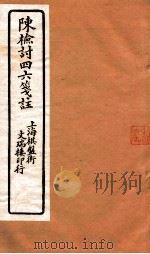 陳檢討四六箋註
上海棋盤街
文瑞樓印行